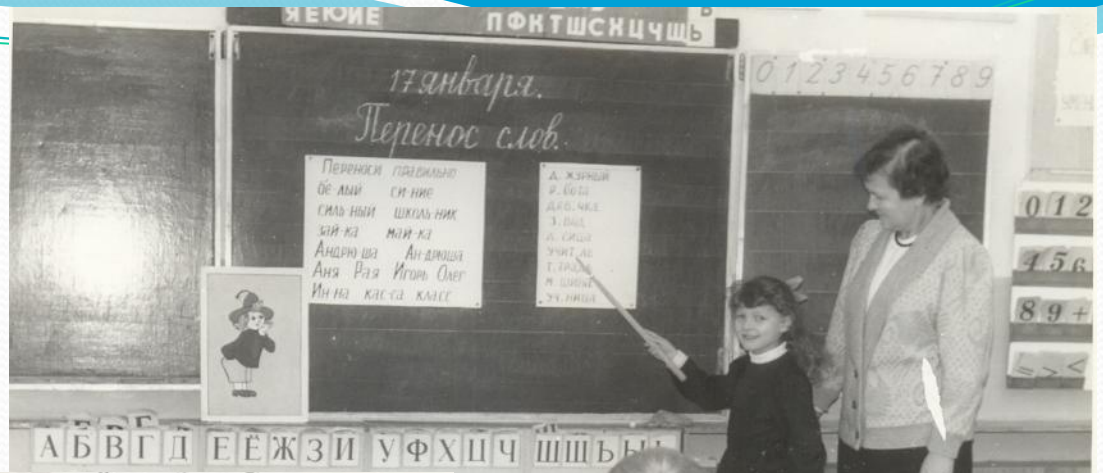 Я Е Ю И Е
П Ф К Т Ш С Х Ц Ч Щ Ь
17 января.
Перенос слов.
0 1 2 3 4 5 6 7 8 9
Переноси правильно
бе-лый си-ние
силь-ный школь-ник
зай-ка май-ка
Андрю-ша Ан-дрюша
Аня Рая Игорь Олег
Ин-на кас-са класс
д.журный
р.бота
дев.чка
з.вод
л.сица
учит.ль
т.традь
м.шина
уч.ница
0 1 2
4 5 6
8 9 +
= > <
А Б В Г Д Е Ё Ж З И У Ф Х Ц Ч Ш Щ Ъ Ы